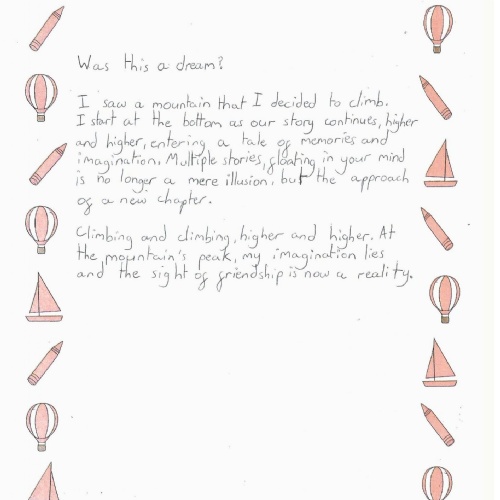 Was this a dream?
I saw a mountain that I decided to climb.
I start at the bottom as our story continues, higher
and higher, entering a tale of memories and
imagination. Multiple stories, floating in your mind
is no longer a mere illusion, but the approach
of a new chapter.
Climbing and climbing, higher and higher. At
the mountain's peak, my imagination lies
and the sight of friendship is now a reality.